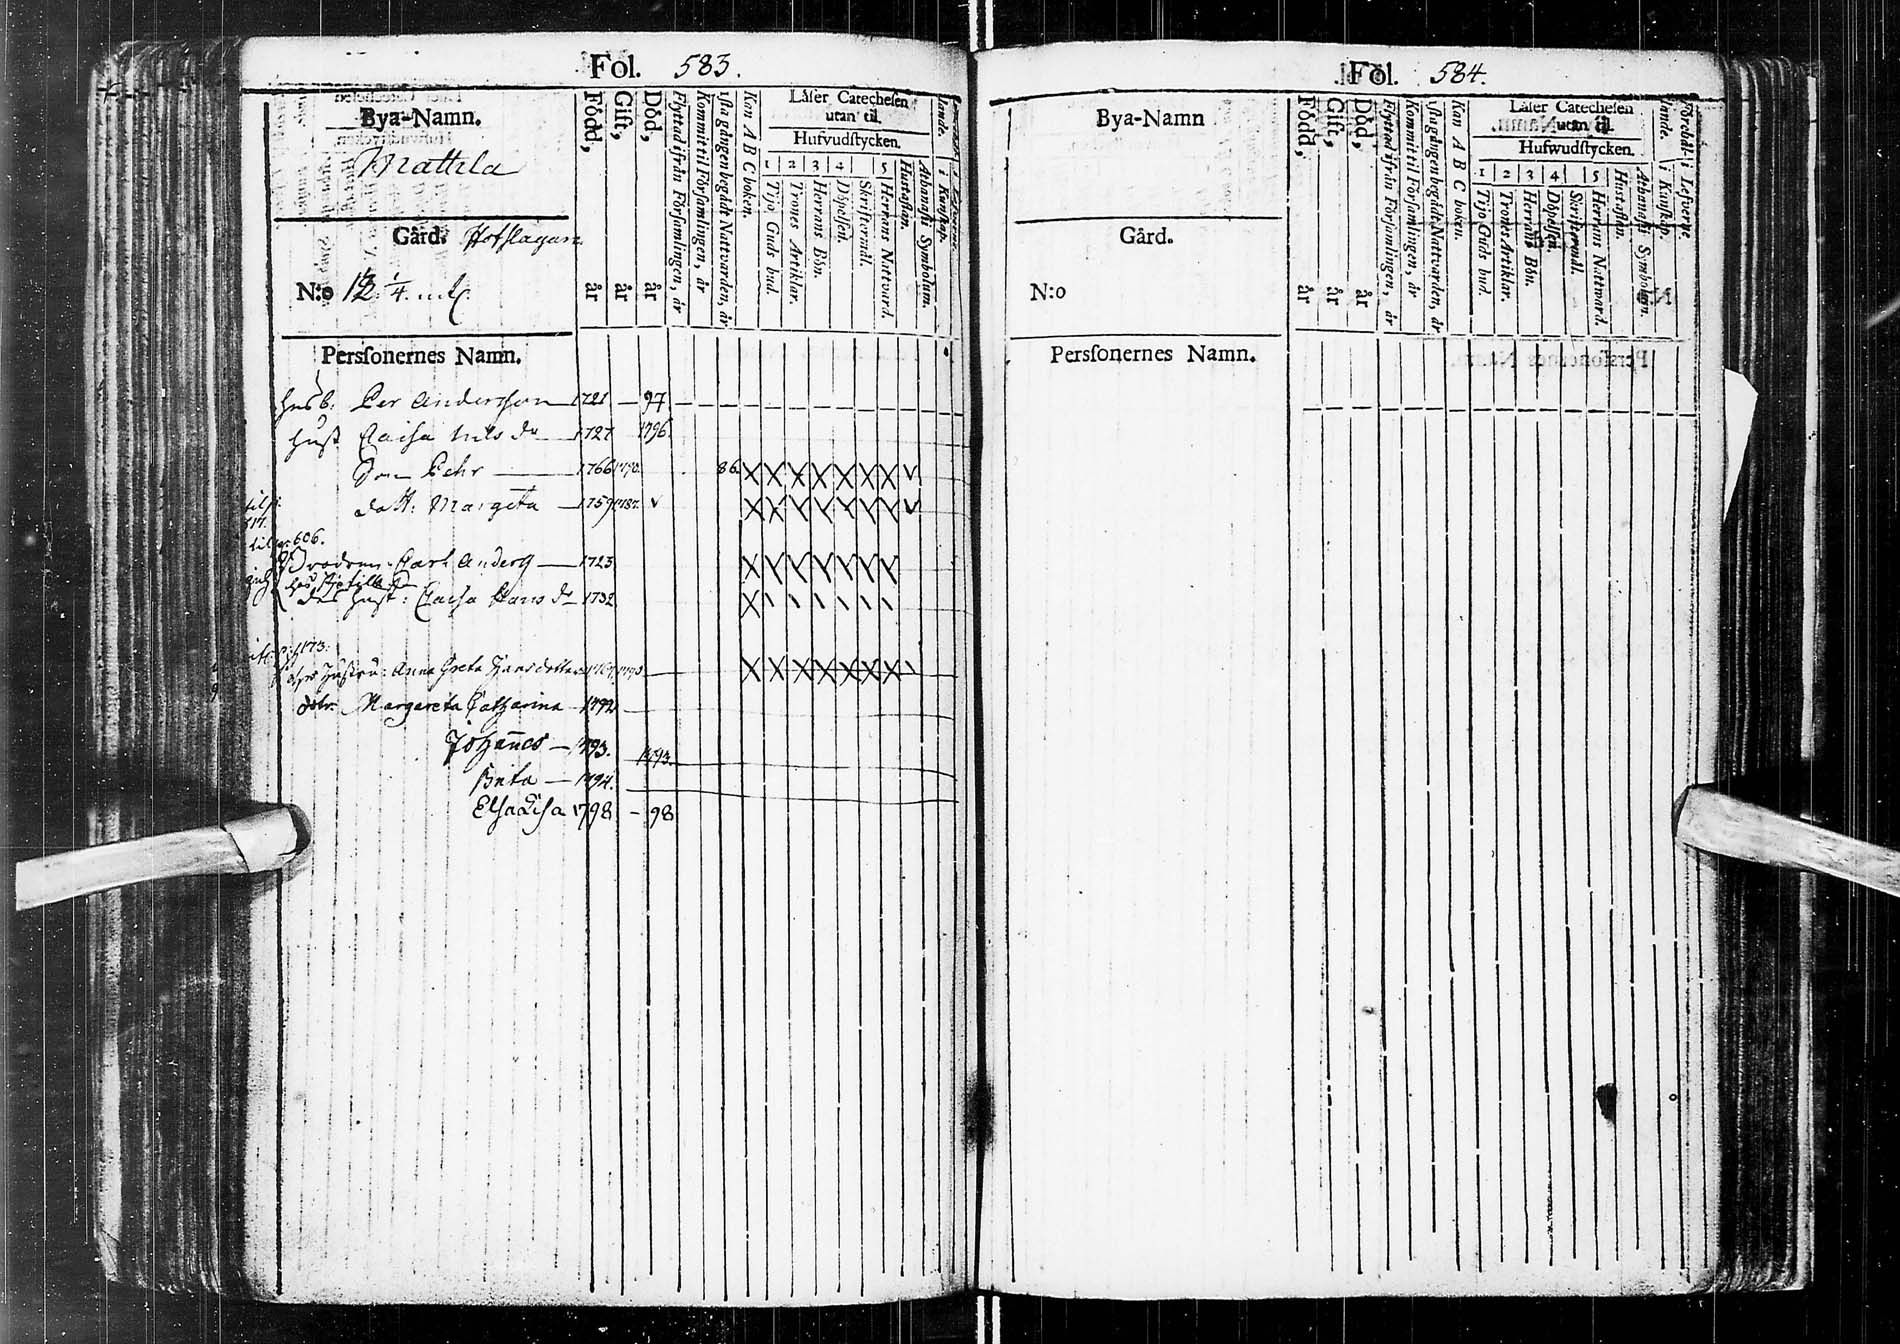 Fol. 583.
Bya-Namn.
Mattila
Gård.
N:o 12. 1/4. mtl.
Född, år
Gift, år
Död, år
Flyttad ifrån Församlingen, år
Kommit til Församlingen, år
1sta gången begådt Nattvarden, år
Kan A B C boken.
Läser Catechesen
utan til.
Hufvudstycken.
1 2 3 4 5
Tijo Guds bud.
Trones Artiklar.
Herrans Bön.
Döpelsen.
Skriftermål.
Herrans Nattvard.
Hustaflan.
Athanasii Symbolum.
i Kunskap.
Perssonernes Namn.
Husb: Per Andersson 1721 – 97
Hust Caisa Nils dr 1727 1796
Son Pehr 1766 1790. 86 X X X X X X X
dott: Margeta 1759 1787.
606.
Brodren Carl Anders 1723
des Hust: Caisa Hans dr 1732
Hustru: Anna Greta Hansdotter
dotr. Margareta Catharina 1792
Johannes – 1793. 1793.
Brita – 1794.
Elsa Lisa 1798 – 98
Fol. 584.
Bya-Namn
Gård.
N:o
Född, år
Gift, år
Död, år
Flyttad ifrån Församlingen, år
Kommit til Församlingen, år
1sta gången begådt Nattvarden, år
Kan A B C boken.
Läser Catechesen
utan til.
Hufwudstycken.
1 2 3 4 5
Tijo Guds bud.
Trones Artiklar.
Herrans Bön.
Döpelsen.
Skriftermål.
Herrans Nattward.
Hustaflan.
Athanasii Symbolum.
i Kunskap.
i Lefverne
Perssonernes Namn.